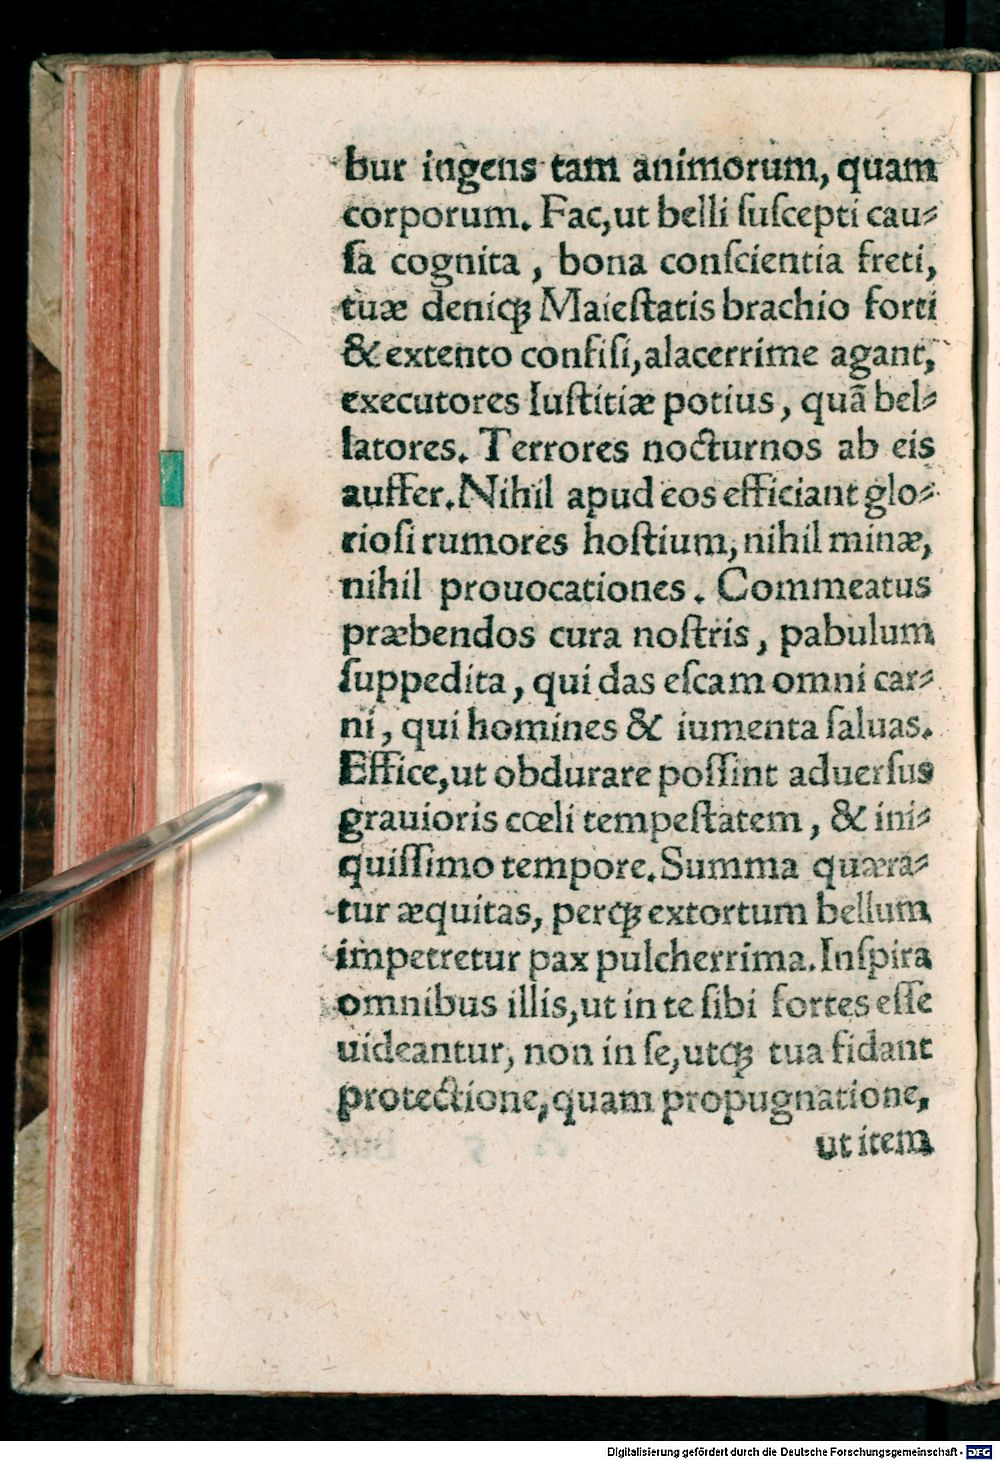 bur ingens tam animorum, quam
corporum. Fac, ut belli ſuſcepti cau⸗
ſa cognita, bona conſcientia freti,
tuæ deniqꝫ Maieſtatis brachio forti
& extento confiſi, alacerrime agant,
executores Iuſtitiæ potius, quã bel⸗
latores. Terrores nocturnos ab eis
auffer. Nihil apud eos efficiant glo⸗
rioſi rumores hoſtium, nihil minæ,
nihil prouocationes. Commeatus
præbendos cura noſtris, pabulum
ſuppedita, qui das eſcam omni car⸗
ni, qui homines & iumenta ſaluas.
Effice, ut obdurare poſſint aduerſus
grauioris cœli tempeſtatem, & ini⸗
quiſſimo tempore. Summa quæra⸗
tur æquitas, perqꝫ extortum bellum
impetretur pax pulcherrima. Inſpira
omnibus illis, ut in te ſibi fortes eſſe
uideantur, non in ſe, utqꝫ tua fidant
protectione, quam propugnatione,
ut item
Digitalisierung gefördert durch die Deutsche Forschungsgemeinschaft - DFG